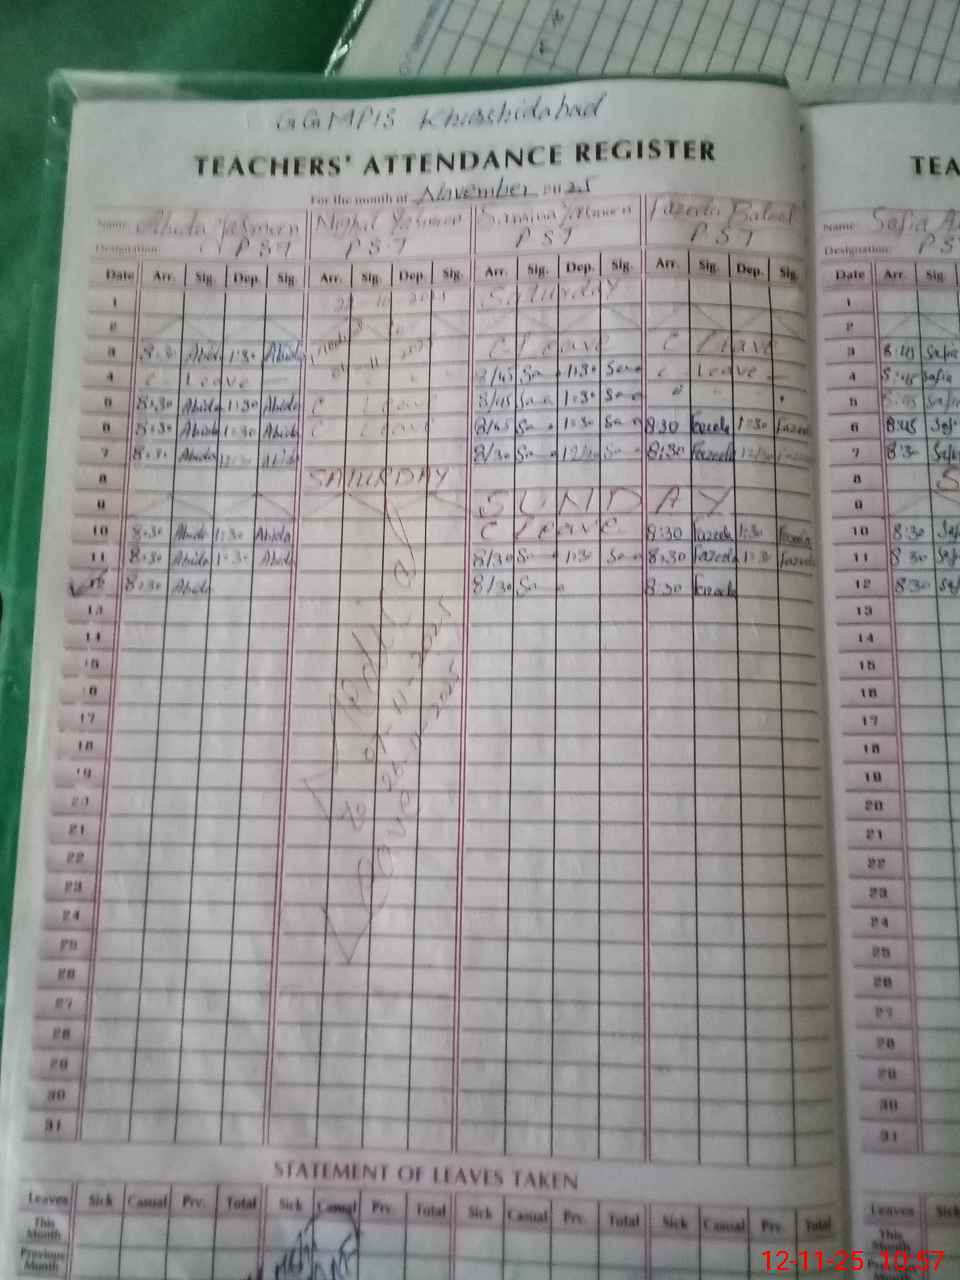 GGMPIS Khurshidabad
TEACHERS' ATTENDANCE REGISTER TEA
For the month of November 2025
Name: Abida Yasmeen Yasmeen Yasmeen Fazeela Batool Name: Safia
Designation: P.S.T P.S.T P.S.T P.S.T Designation: PS
Date Arr. Sig. Dep. Sig. Arr. Sig. Dep. Sig. Arr. Sig. Dep. Sig. Arr. Sig. Dep. Sig. Date Arr. Sig.
1 Saturday 1
2 2
3 8:30 Abida 1:30 Abida C Leave C Leave 3 8:45 Safia
4 C Leave 8/45 Sa 1:30 Sa C Leave 4 8:45 Safia
5 8:30 Abida 1:30 Abida C Leave 8/45 Sa 1:30 Sa 5 8:45 Safia
6 8:30 Abida 1:30 Abida C Leave 8/45 Sa 1:30 Sa 8:30 Fazeela 1:30 Fazeela 6 8:45 Saf
7 8:30 Abida Abida 8/30 Sa 12/30 Sa 8:30 Fazeela 12/30 Fazeela 7 8:30 Safia
8 SATURDAY 8 S
9 SUNDAY 9
10 8:30 Abida 1:30 Abida C Leave 8:30 Fazeela 1:30 Fazeela 10 8:30 Saf
11 8:30 Abida 1:30 Abida 8/30 Sa 1:30 Sa 8:30 Fazeela 1:30 Fazeela 11 8:30 Saf
12 8:30 Abida 8/30 Sa 8:30 Fazeela 12 8:30 Saf
13 13
14 14
15 15
16 16
17 17
18 18
19 19
20 20
21 21
22 22
23 23
24 24
25 25
26 26
27 27
28 28
29 29
30 30
31 31
Medical
07-11-2025
to 26-11-2025
Leave
STATEMENT OF LEAVES TAKEN
Leaves Sick Casual Prv. Total Sick Casual Prv. Total Sick Casual Prv. Total Sick Casual Prv. Total Leaves Sick
This Month This Month
Previous Month Previous Month
12-11-25 10:57